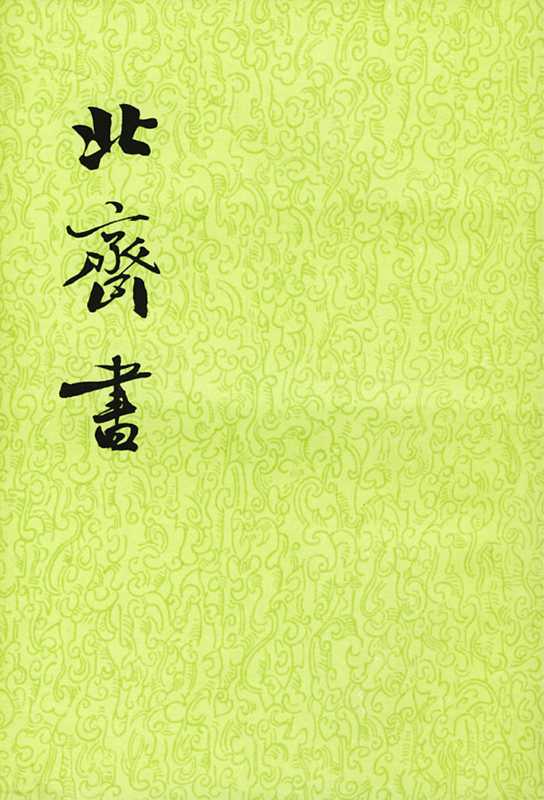 北齊書